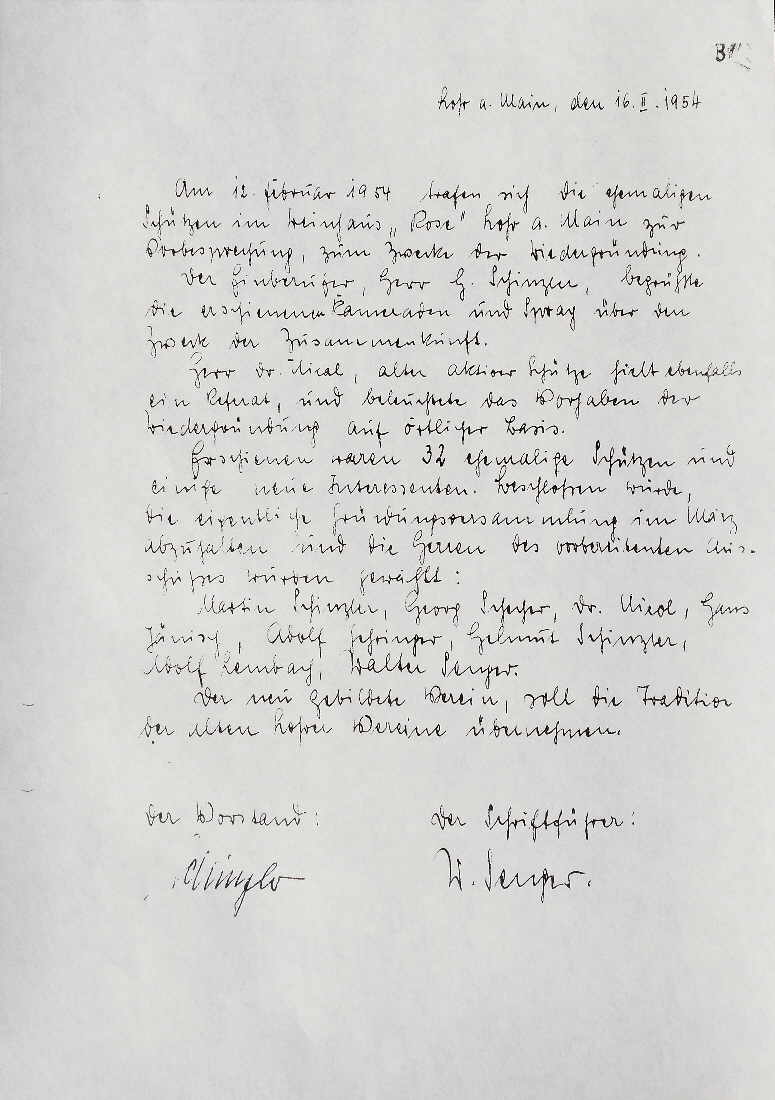 31
Lohr a. Main, den 16. II. 1954
Am 12. Februar 1954 trafen sich die ehemaligen
Schützen im Weinhaus „Rose" Lohr a. Main zur
Vorbesprechung, zum Zwecke der Wiedergründung.
Der Einberufer, Herr G. Schinzler, begrüßte
die erschienenen Kameraden und Sprach über den
Zweck der Zusammenkunft.
Herr Dr. Nicol, alter aktiver Schütze hielt ebenfalls
ein Referat, und beleuchtete das Vorhaben der
Wiedergründung auf örtlicher Basis.
Erschienen waren 32 ehemalige Schützen und
einige neue Interessenten. Beschlossen wurde,
die eigentliche Gründungsversammlung im März
abzuhalten und die Herren des vorbereitenten Aus-
schußes wurden gewählt:
Martin Schinzler, Georg Scheher, Dr. Nicol, Hans
Jänisch, Adolf Fehringer, Helmut Schinzler,
Adolf Lembach, Walter Senger.
Der neu gebildete Verein, soll die Tradition
der alten Lohrer Vereine übernehmen.
Der Vorstand: Der Schriftführer:
W. Senger.